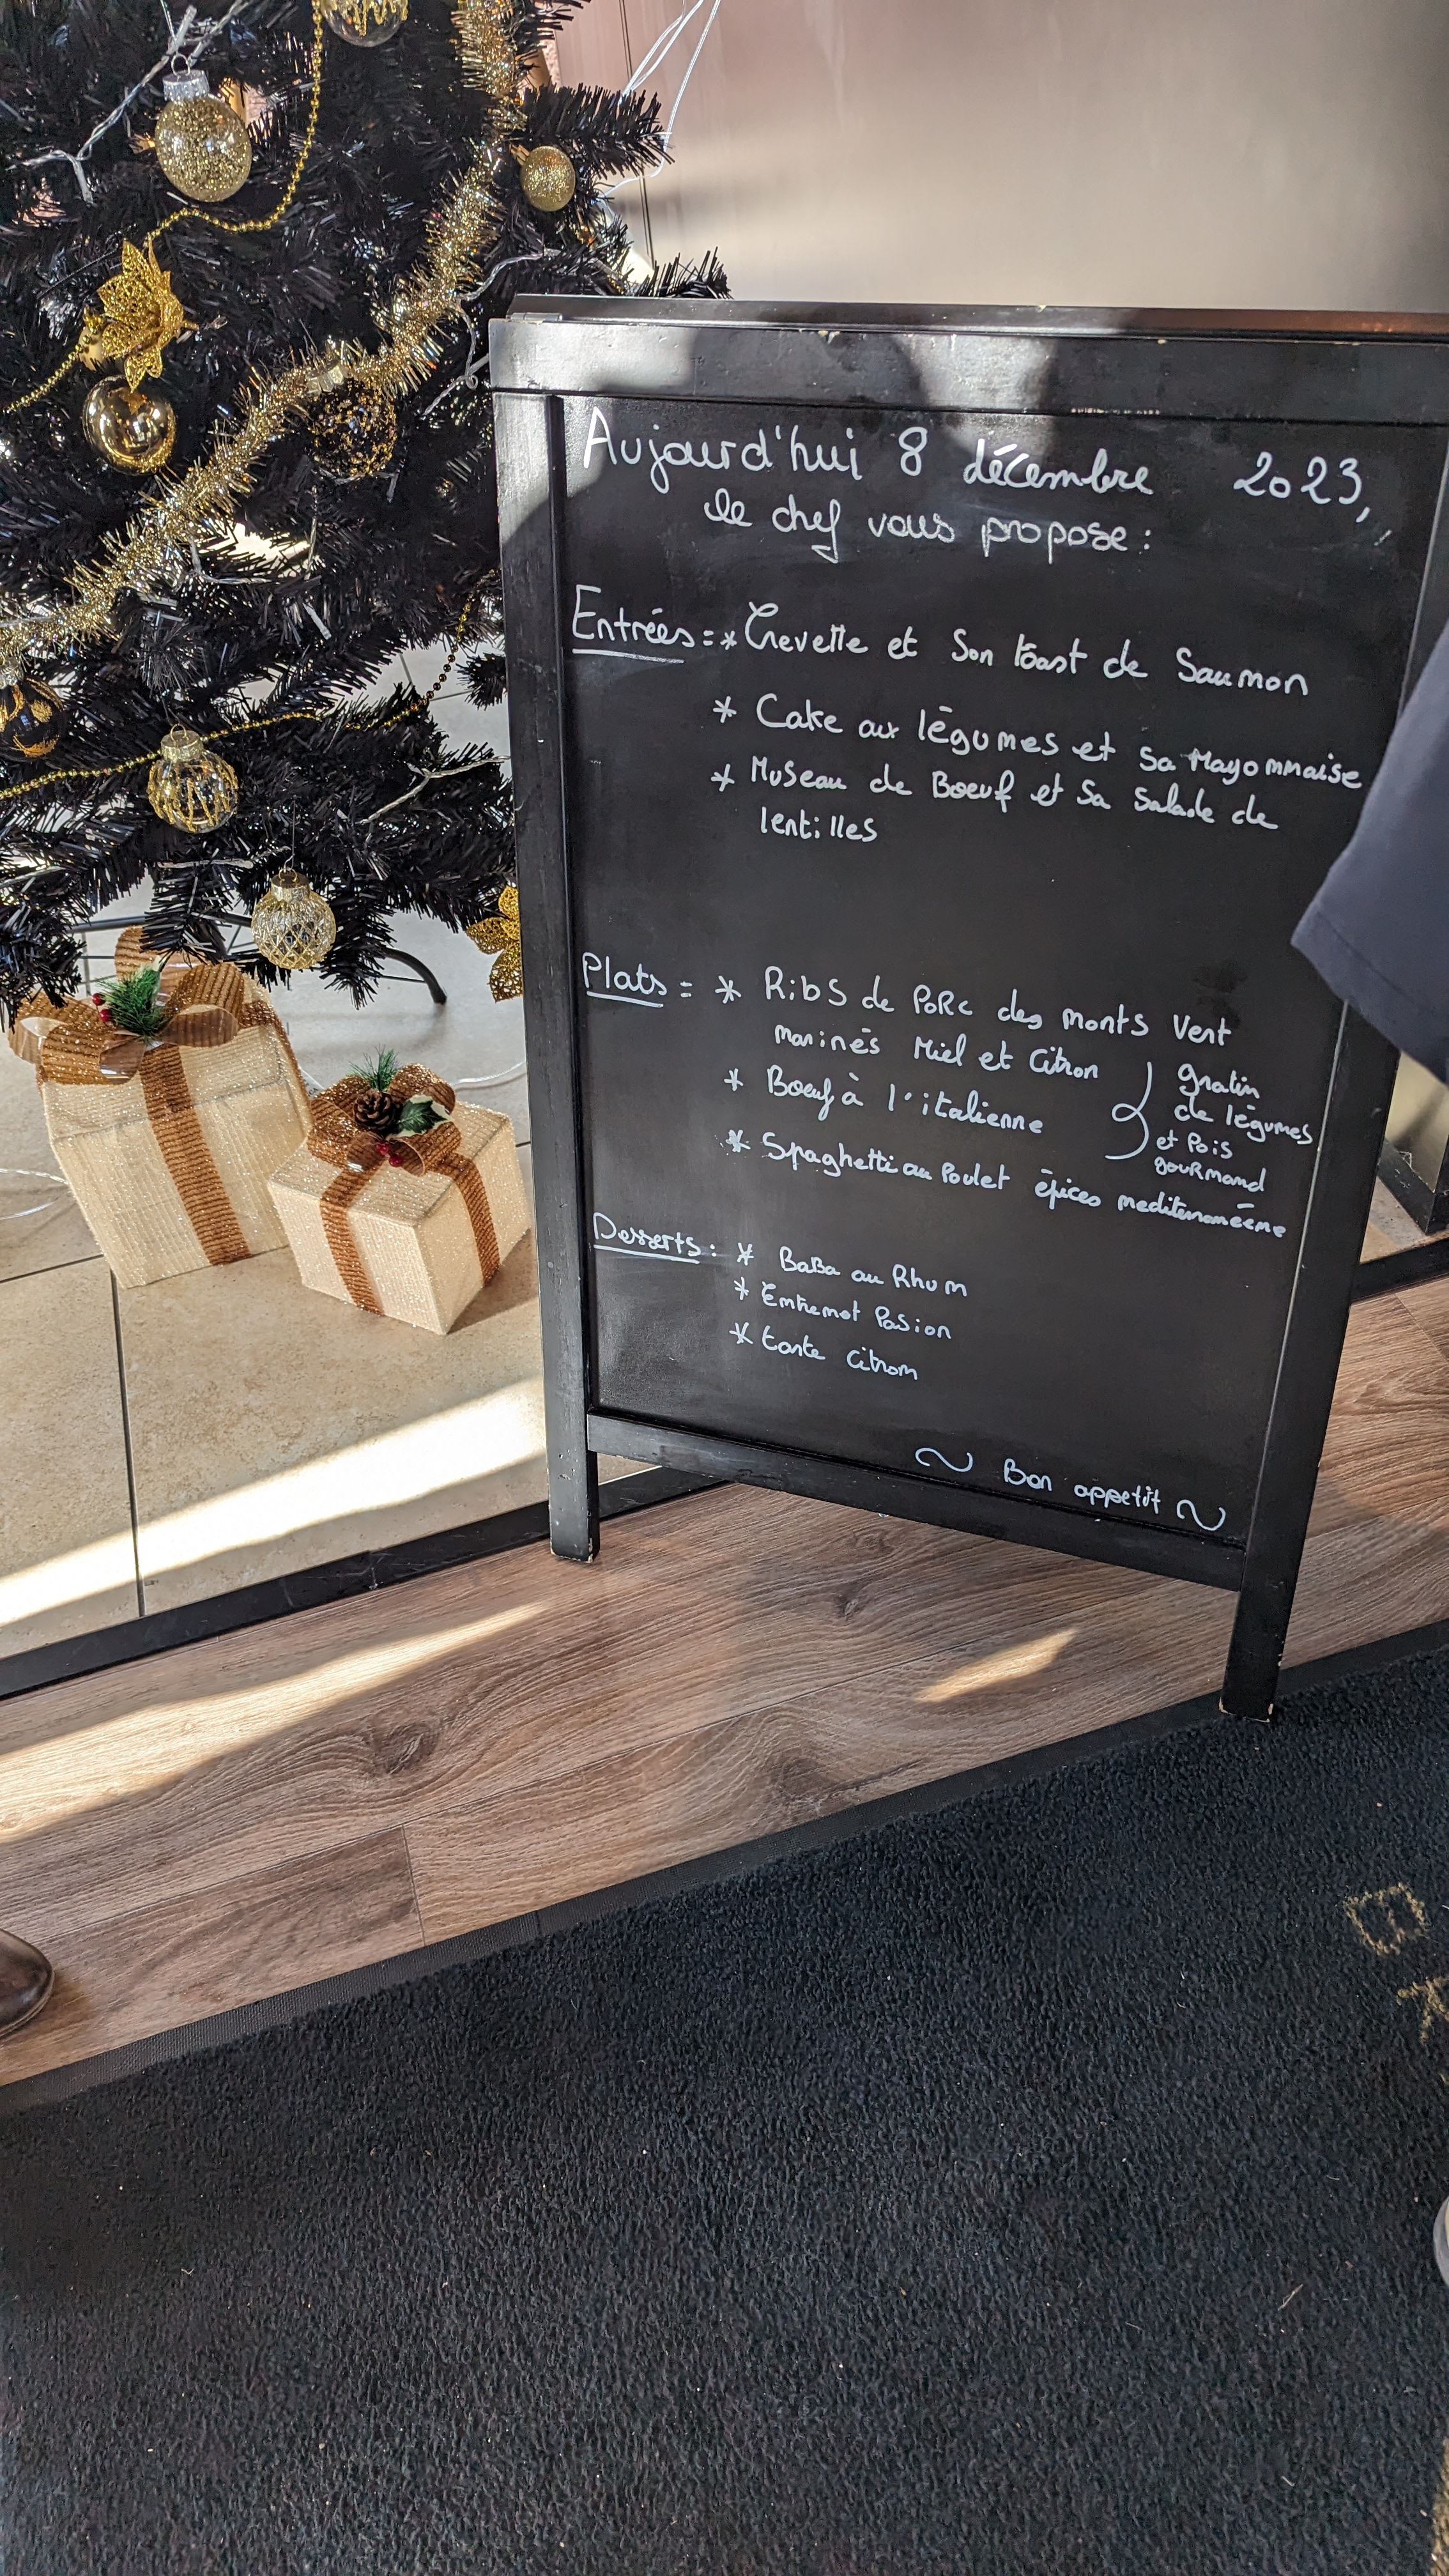 Aujourd'hui 8 décembre 2023,
le chef vous propose :
Entrées : * Crevette et Son toast de Saumon
* Cake aux légumes et sa Mayonnaise
* Museau de Boeuf et Sa Salade de
lentilles
Plats : * Ribs de PoRc des monts Vert
marinés Miel et Citron
* Boeuf à l'italienne
gratin
de légumes
et Pois
gouRmand
* Spaghetti au Poulet épices mediterranéenne
Desserts : * BaBa au Rhum
* Entremet Pasion
* tarte citron
~ Bon appetit ~
B